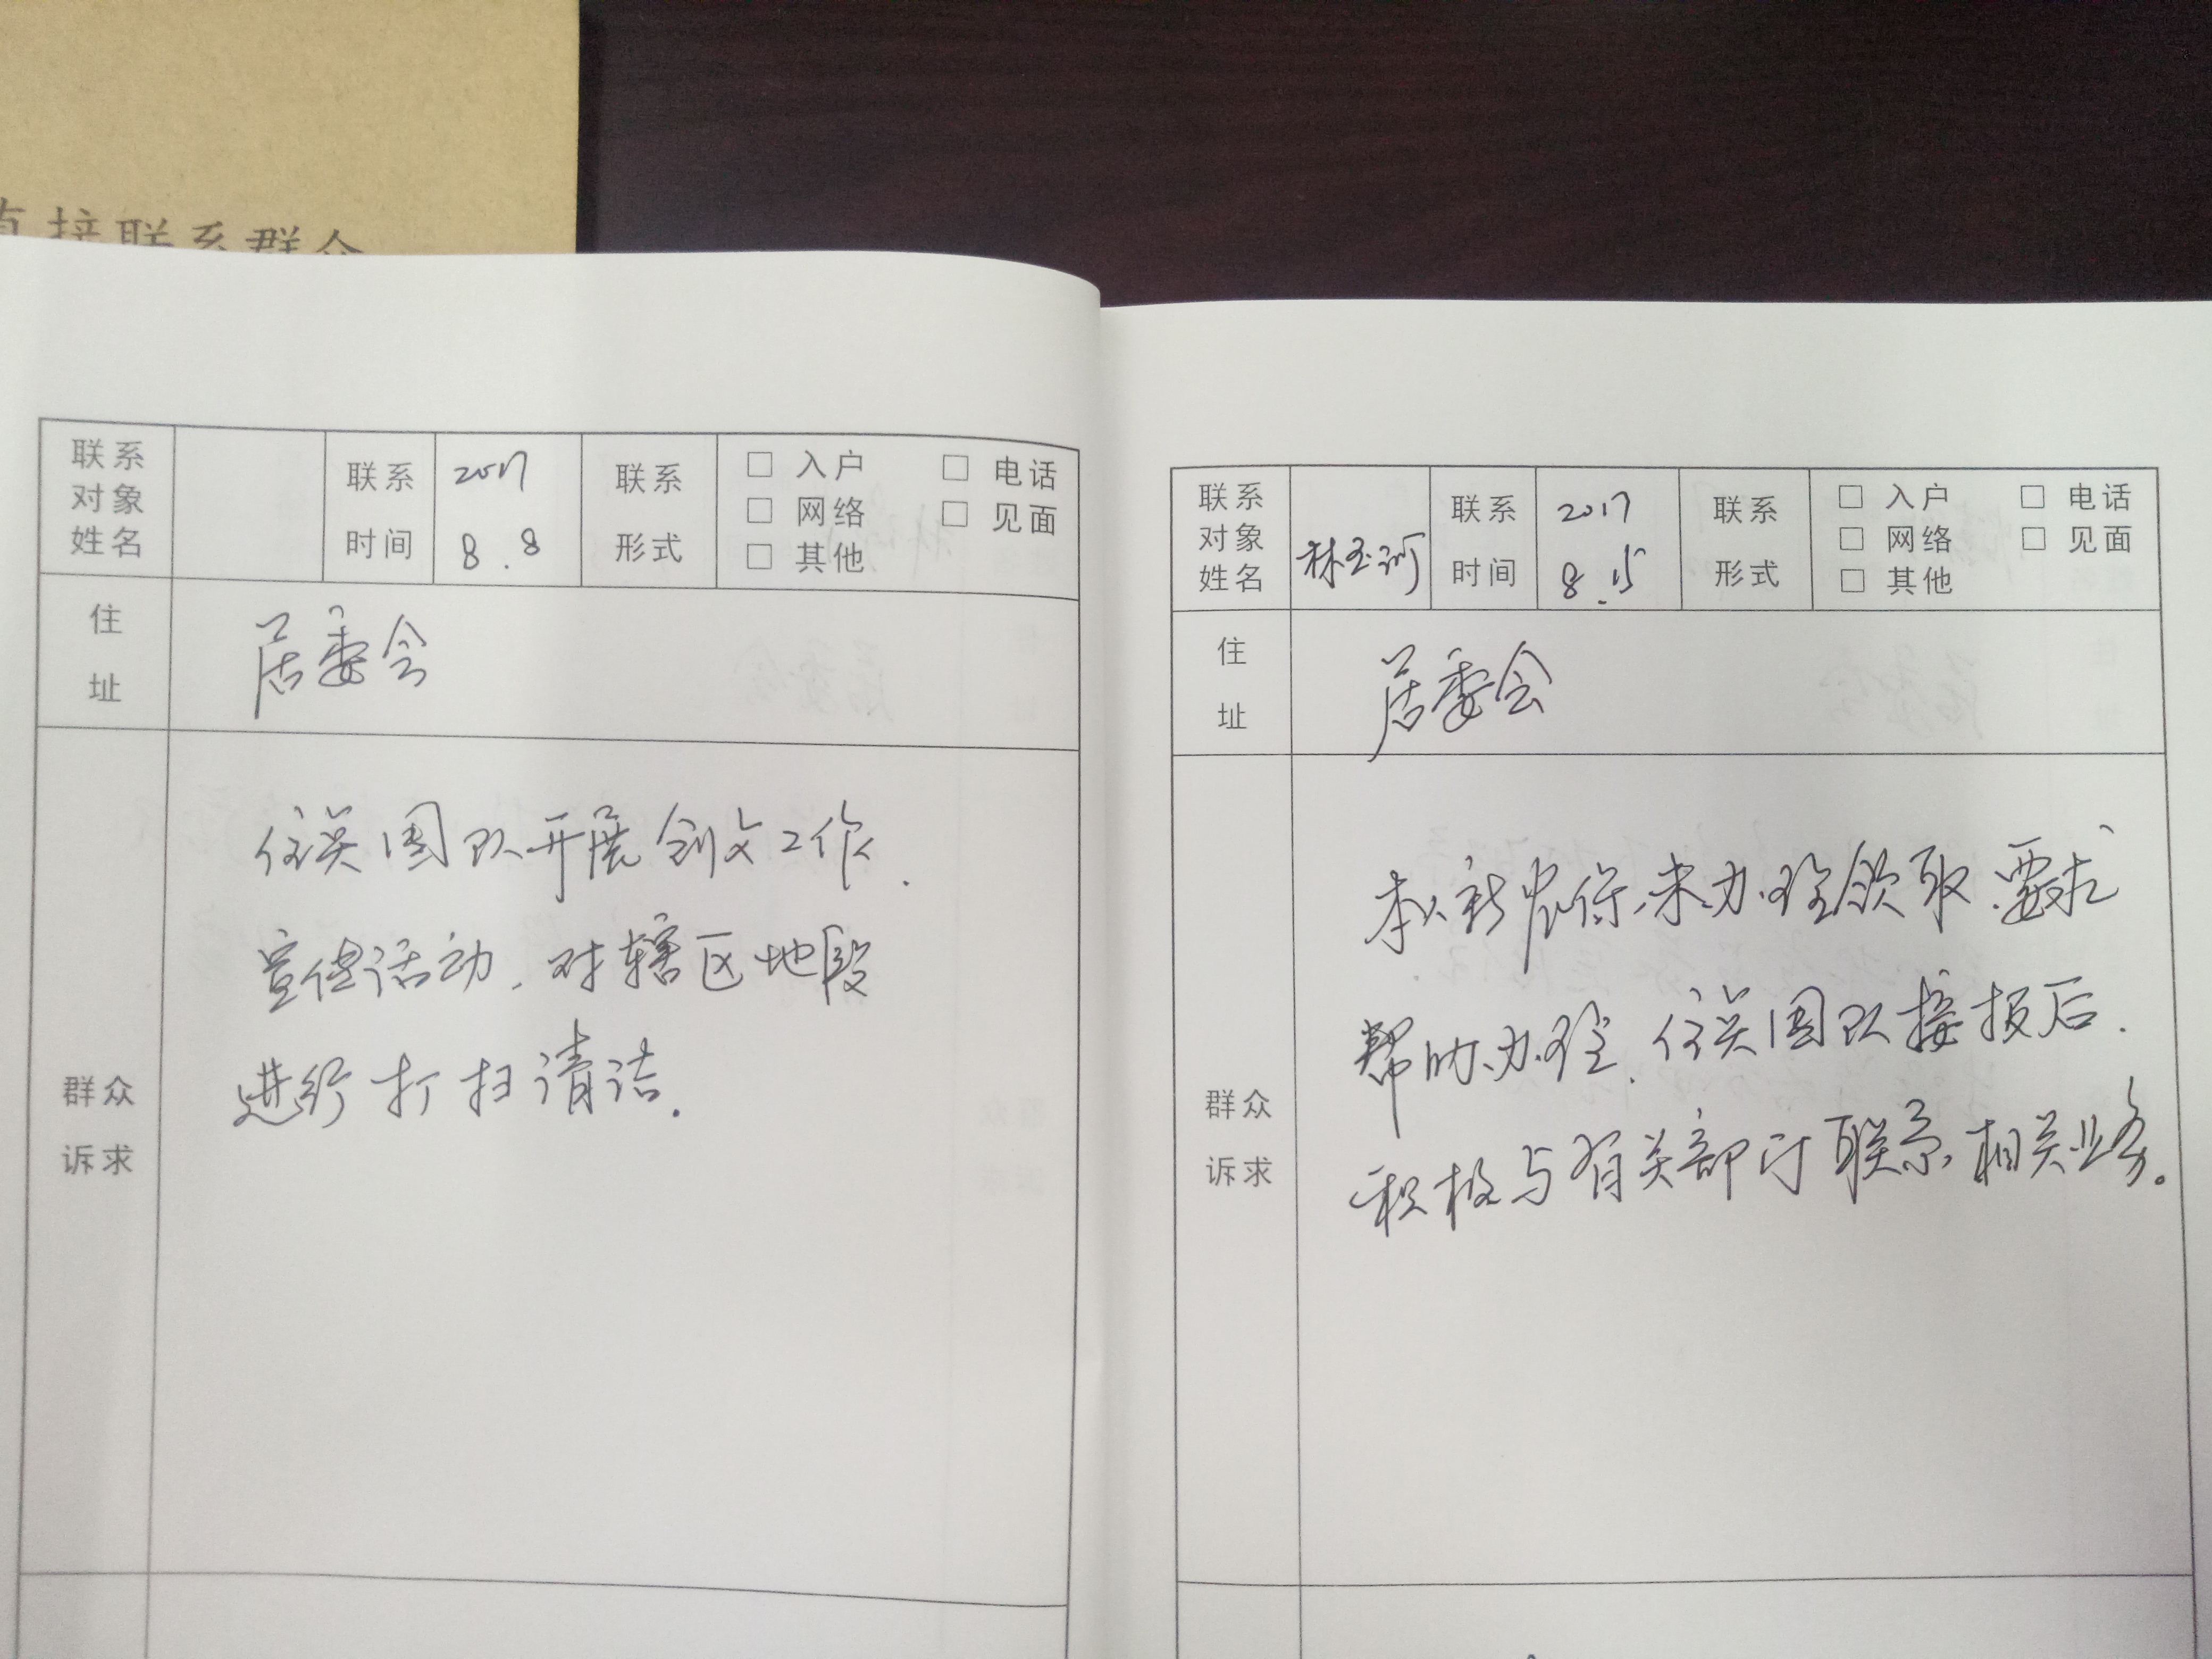 直接联系群众
联系对象姓名
联系时间
2017
8.8
联系形式
□ 入户 □ 电话
□ 网络 □ 见面
□ 其他
住址
居委会
群众诉求
团队开展创文工作.
宣传活动.对辖区地段
进行打扫清洁.
联系对象姓名
林玉
联系时间
2017
8.15
联系形式
□ 入户 □ 电话
□ 网络 □ 见面
□ 其他
住址
居委会
群众诉求
本人新农保,未办理领取.要求
帮助办理.团队接报后.
积极与有关部门联系,相关业务。